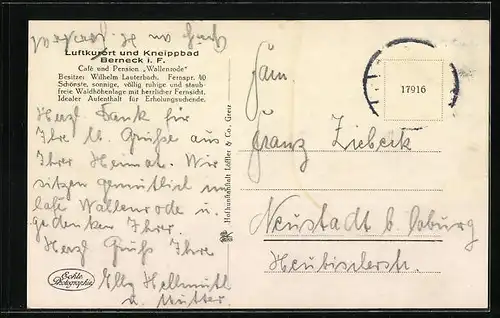 Luftkurort und Kneippbad
Berneck i. F.
Café und Pension „Wallenrode"
Besitzer Wilhelm Lauterbach. Fernspr. 40
Schönste, sonnige, völlig ruhige und staub-
freie Waldhöhenlage mit herrlicher Fernsicht.
Idealer Aufenthalt für Erholungssuchende.
Herzl. Dank für
Ihre lb. Grüße aus
Ihrer Heimat. Wir
sitzen gemütlich im
Café Wallenrode u.
gedenken Ihrer.
Herzl Grüße Ihre
Elly Hellmuth
u. Mutter.
Echte Photographie
Hofkunstanstalt Löffler & Co., Greiz
17916
Fam.
Franz Ziebeck
Neustadt b. Coburg
Heubischerstr.